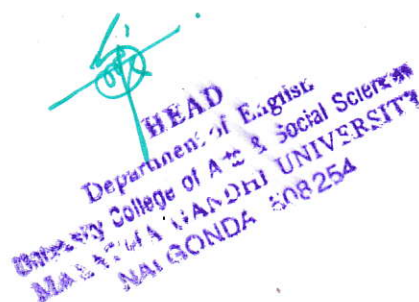 HEAD
Department of English
University College of Arts & Social Sciences
MAHATMA GANDHI UNIVERSITY
NALGONDA 508254